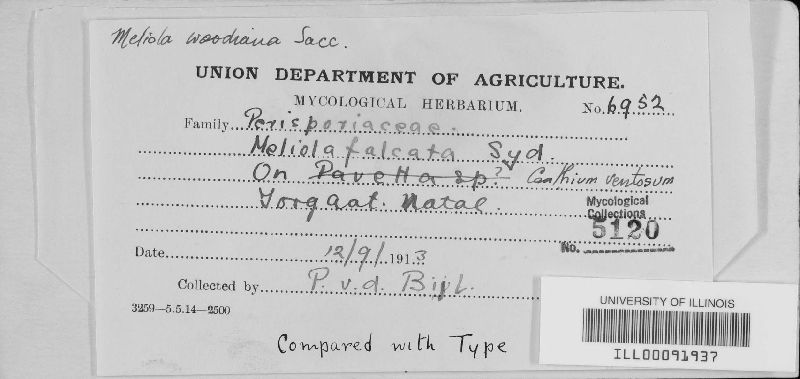 Meliola woodiana Sacc.
UNION DEPARTMENT OF AGRICULTURE.
MYCOLOGICAL HERBARIUM. No. 6952
Family Perisporiaceae.
Meliola falcata Syd.
On Pavetta sp.? Canthium ventosum
Natal.
Mycological
Collections
5120
No.
Date 12/9/1913
Collected by P. v. d. Bijl.
3259—5.5.14—2500
Compared with Type
UNIVERSITY OF ILLINOIS
ILL00091937